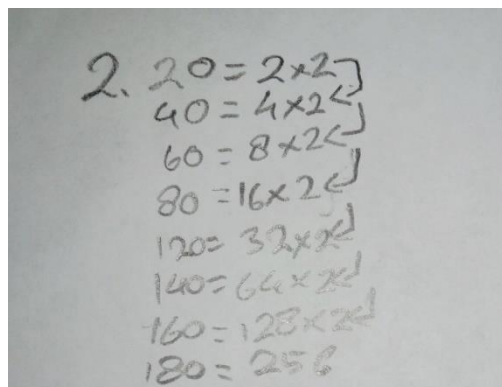 2. 20 = 2×2
40 = 4×2
60 = 8×2
80 = 16×2
120 = 32×2
140 = 64×2
160 = 128×2
180 = 256